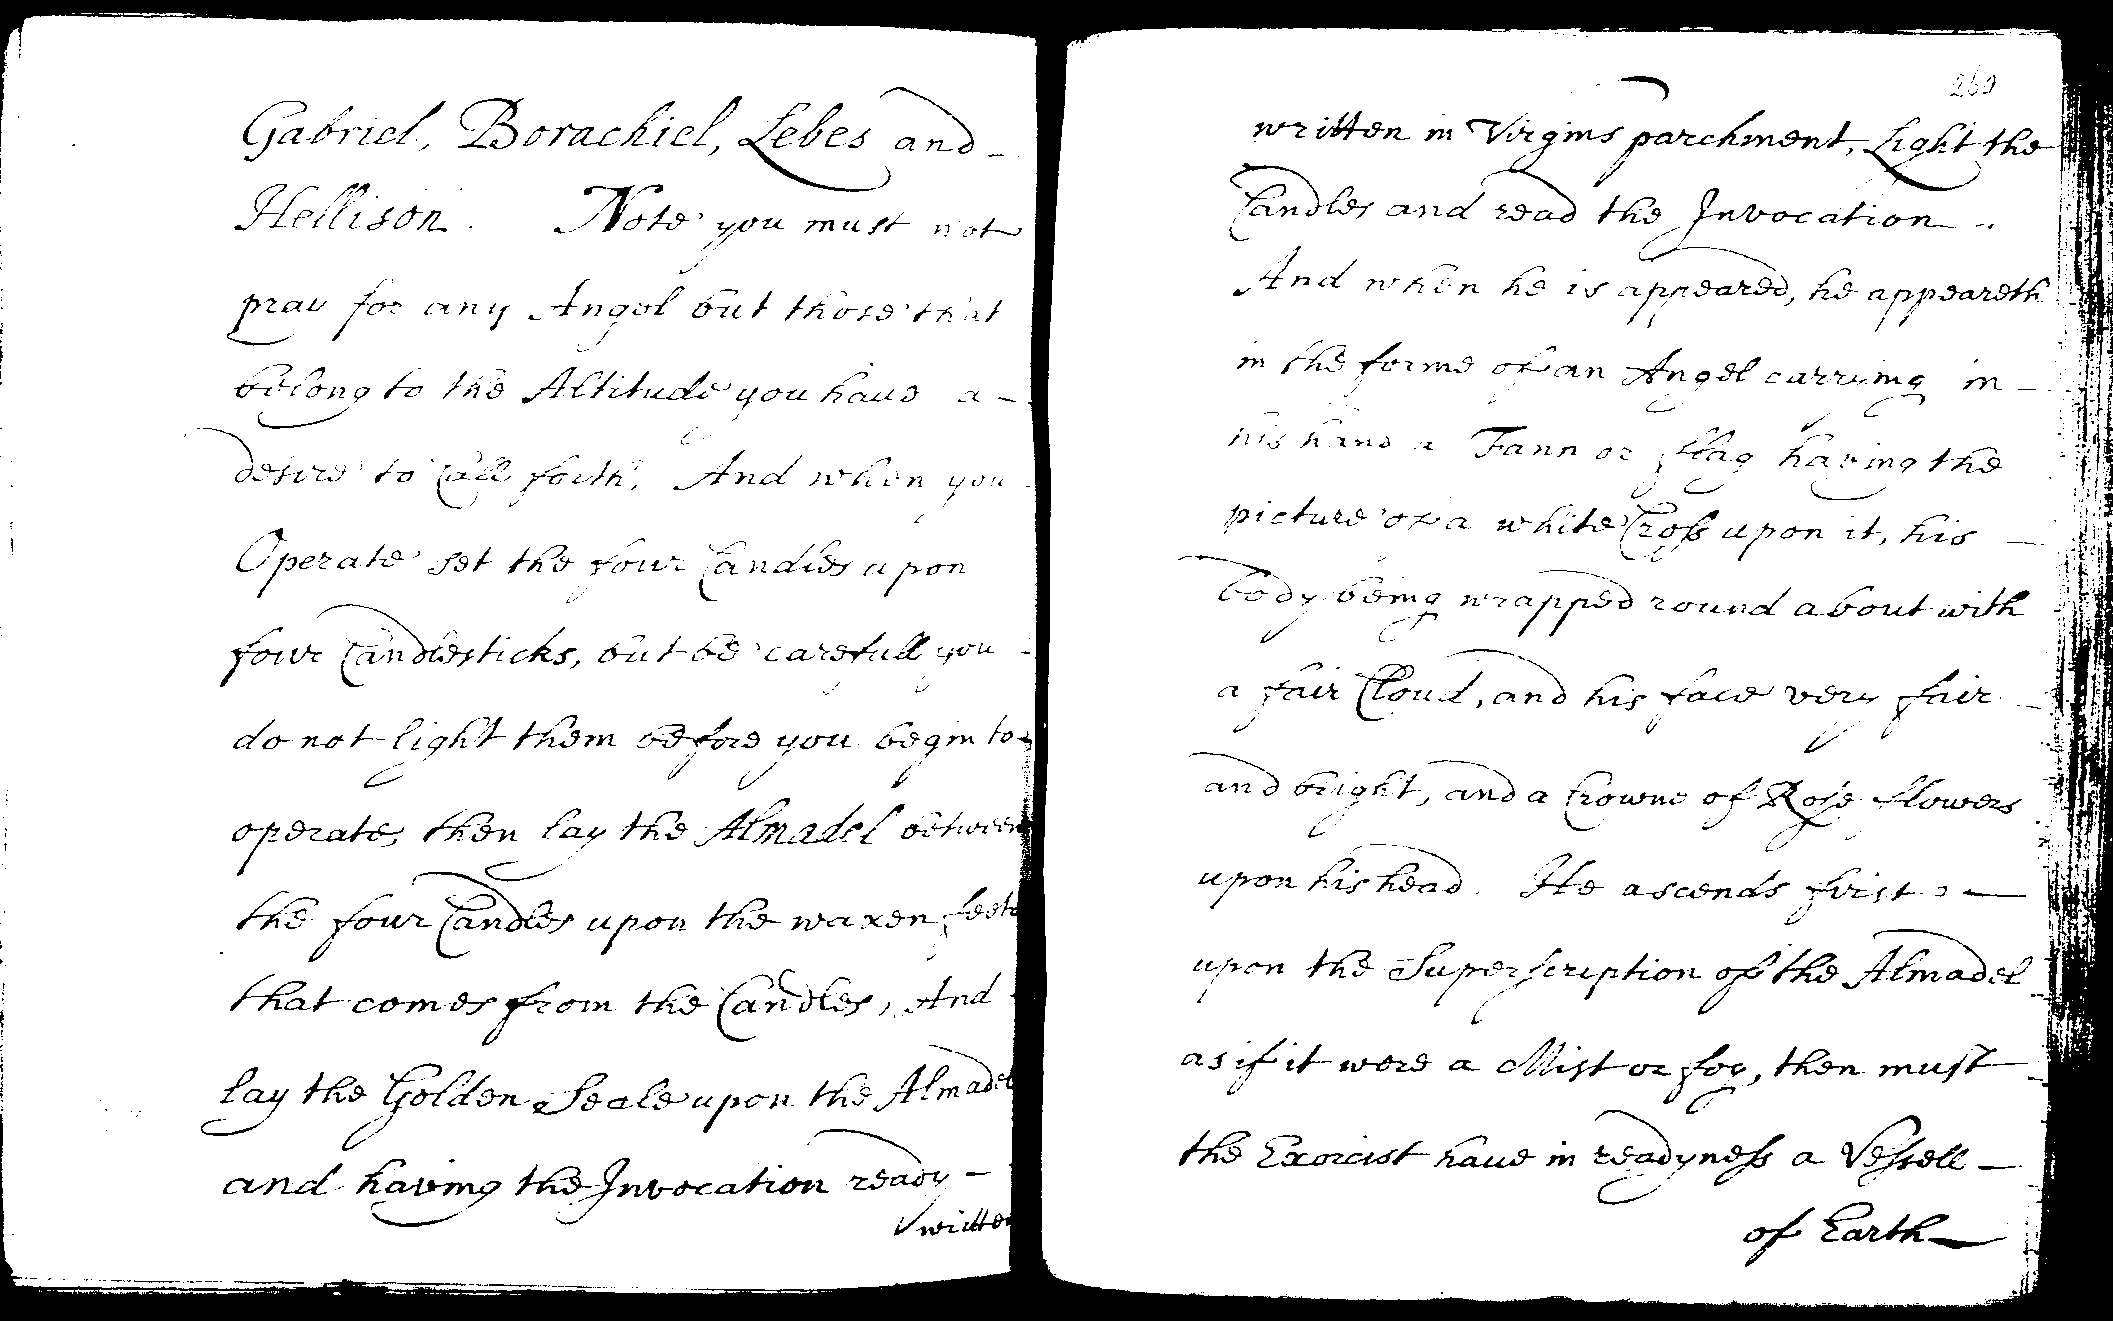 Gabriel, Borachiel, Lebes and
Hellison. Note you must not
pray for any Angel but those that
belong to the Altitude you haue a
desire to Call forth. And when you
Operate set the four Candles upon
four Candlesticks, but be carefull you
do not light them before you begin to
operate, then lay the Almadel between
the four Candles upon the waxen feete
that comes from the Candles, And
lay the Golden Seale upon the Almadel
and having the Invocation ready
written
260
written in Virgins parchment, Light the
Candles and read the Invocation.
And when he is appeared, he appeareth
in the forme of an Angel carrying in
his hand a Fann or flag having the
picture of a white Cross upon it, his
body being wrapped round about with
a fair Cloud, and his face very fair
and bright, and a Crowne of Rose flowers
upon his head. He ascends first
upon the Superscription of the Almadel
as if it were a Mist or fog, then must
the Exorcist haue in readyness a Vessell
of Earth